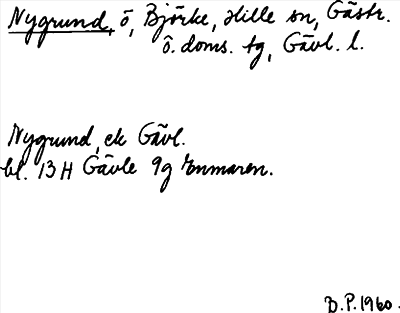 Nygrund, ö, Björke, Hille sn, Gästr.
ö. doms. tg, Gävl. l.
Nygrund, ek Gävl.
bl. 13 H Gävle 9g Enmaren.
D.P. 1960.